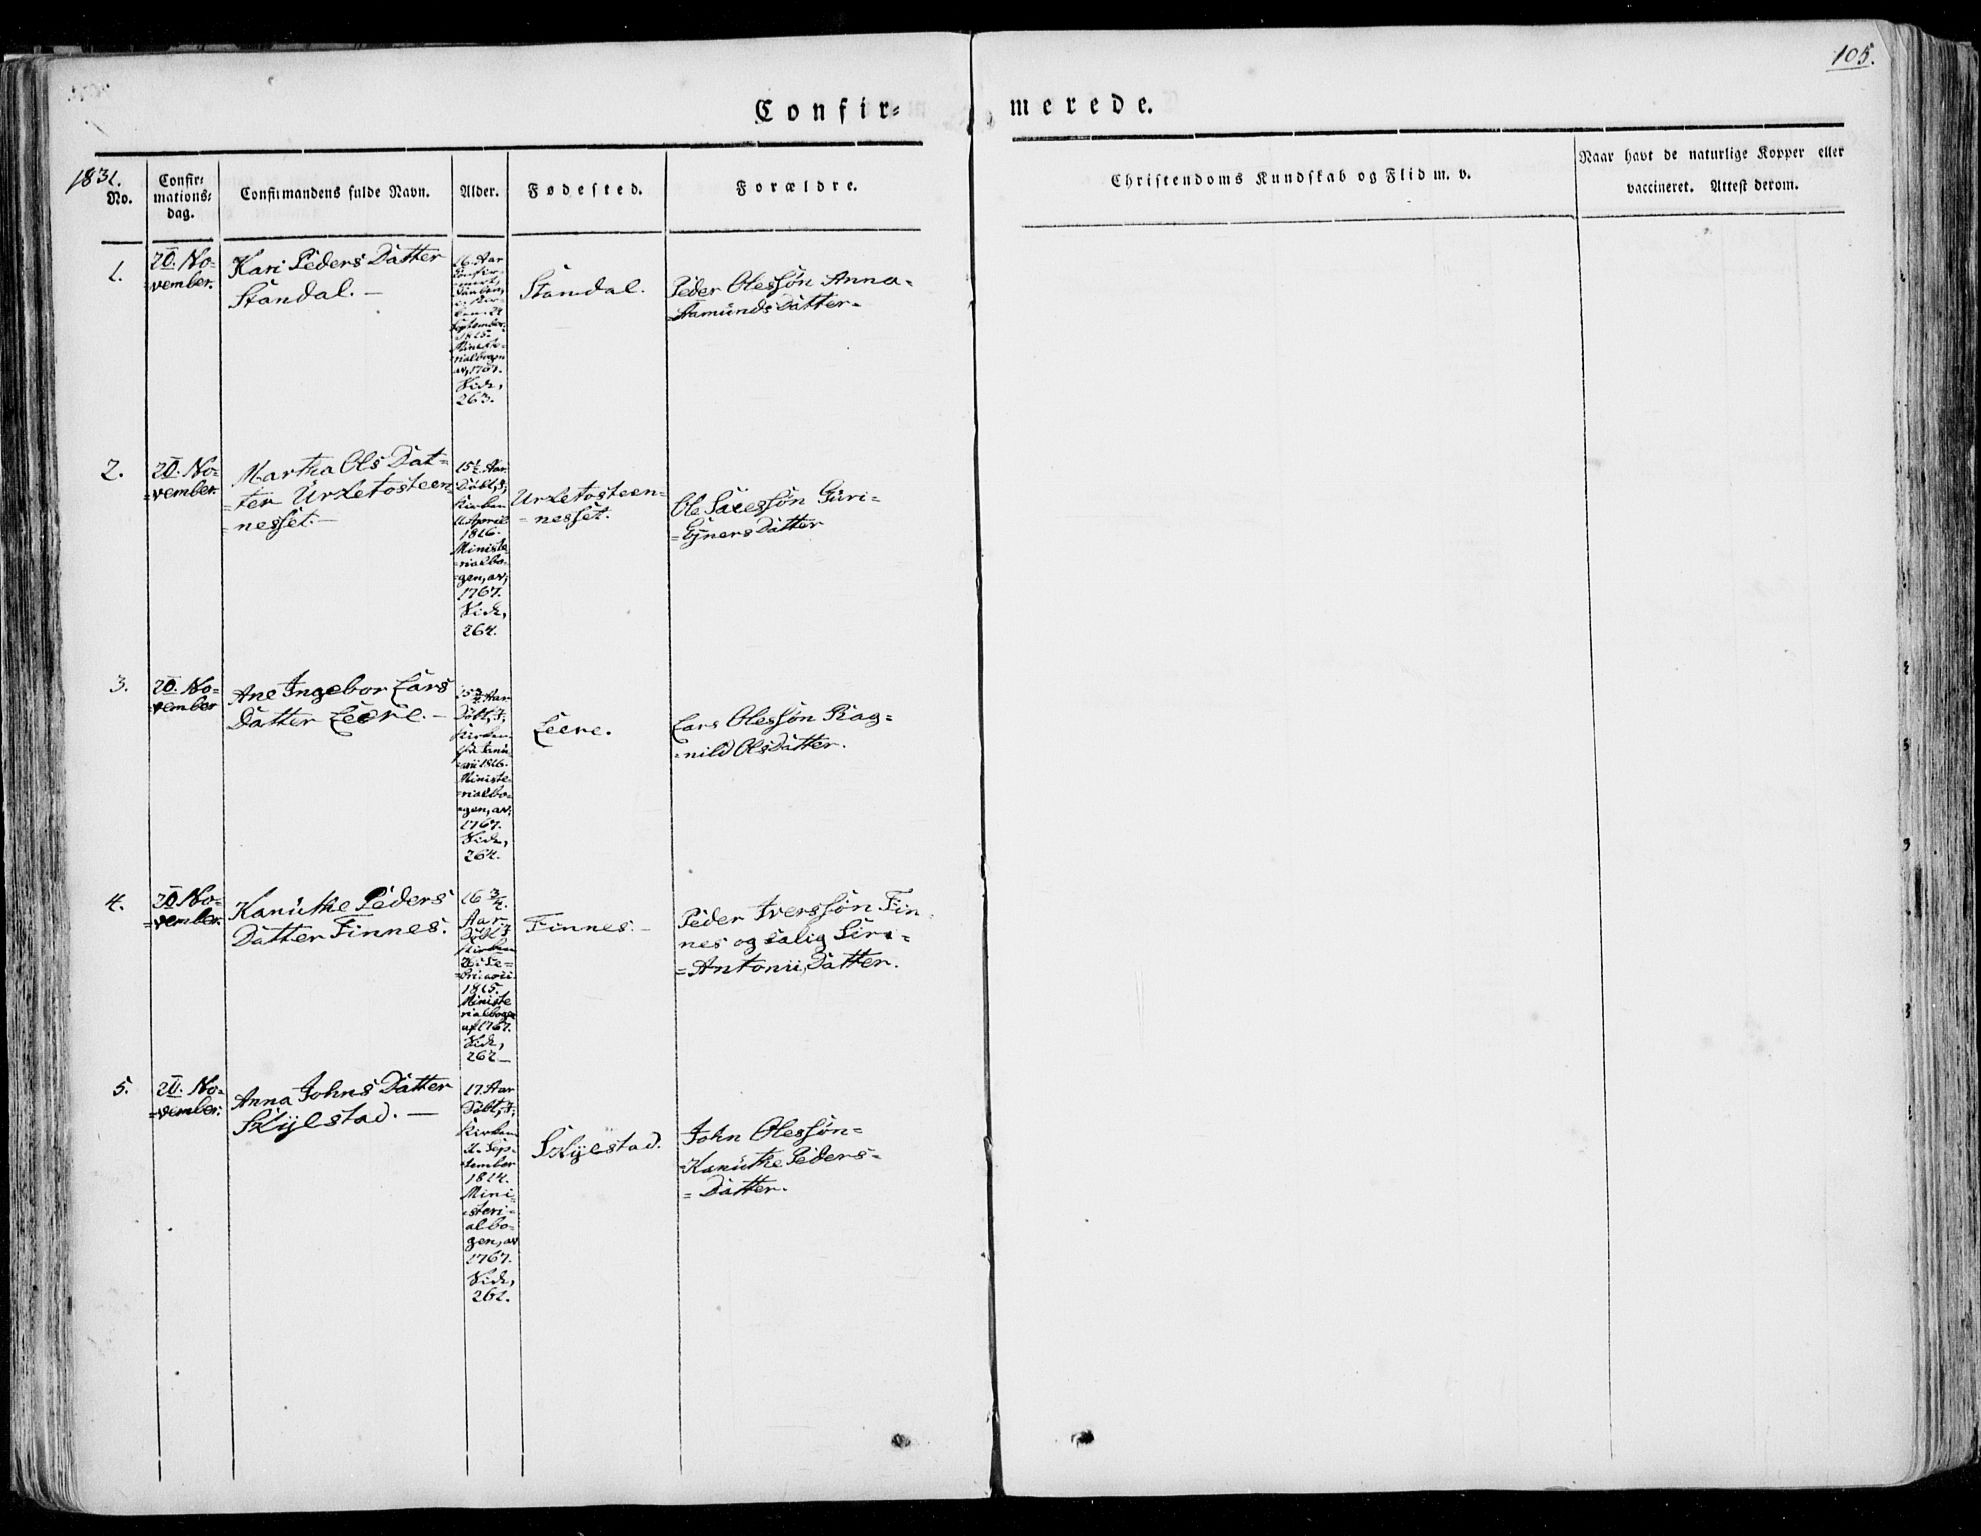 105.
Confir=
merede.
1831.
No.
Confir=
mations=
dag.
Confirmandens fulde Navn.
Alder.
Fødested.
Forældre.
Christendoms Kundskab og Flid m. v.
Naar havt de naturlige Kopper eller
vaccineret. Attest derom.
1.
20. No=
vember.
Kari Peders Datter
Standal. —
16. Aar
September
1815.
Ministe=
rialbogen
av, 1767.
Side,
263.
Standal.
Peder Olessøn Anna=
=Aamunds Datter=
2.
20. No=
=vember.
Martha Ols Dat=
=ter Urketosteen=
=nesset. —
15½. Aar.
Döbt, I,
Kirken
11 April
1816.
Ministe=
=rialbo=
=gen, av,
1767.
Side,
264.
Urketosteen=
=nesset.
Ole Saxessøn Guri=
=Ejners Datter
3.
20. No=
=vember
Ane Ingebor Lars
Datter Leere. —
15¾. Aar
Döbt, I,
Kirken
Janu
=arii 1816.
Ministe=
=rialbo=
=gen, av,
1767.
Side,
264.
Leere.
Lars Olessøn Rag=
=nild Ols Datter.
4.
20 No=
=vember.
Kanuthe Peders
Datter Finnes.
16 ¾.
Aar
Döbt I
Kirken
26. Fe=
=bruarii
1815.
Ministe
rialboge
af 1767.
Side,
262 —
Finnes. —
Peder Iverssøn Fin=
nes og salig Siri=
=Antonii, Datter.
5.
20. No=
=vember.
Anna Johns Datter
Skylstad. —
17. Aar
Döbt, I,
Kirken
2. Sep=
=tember
1814.
Mini=
=steri=
albo=
gen, av
1767.
Side,
262.
Skylstad.
John Olessøn=
=Kanuthe Peders=
=Datter.